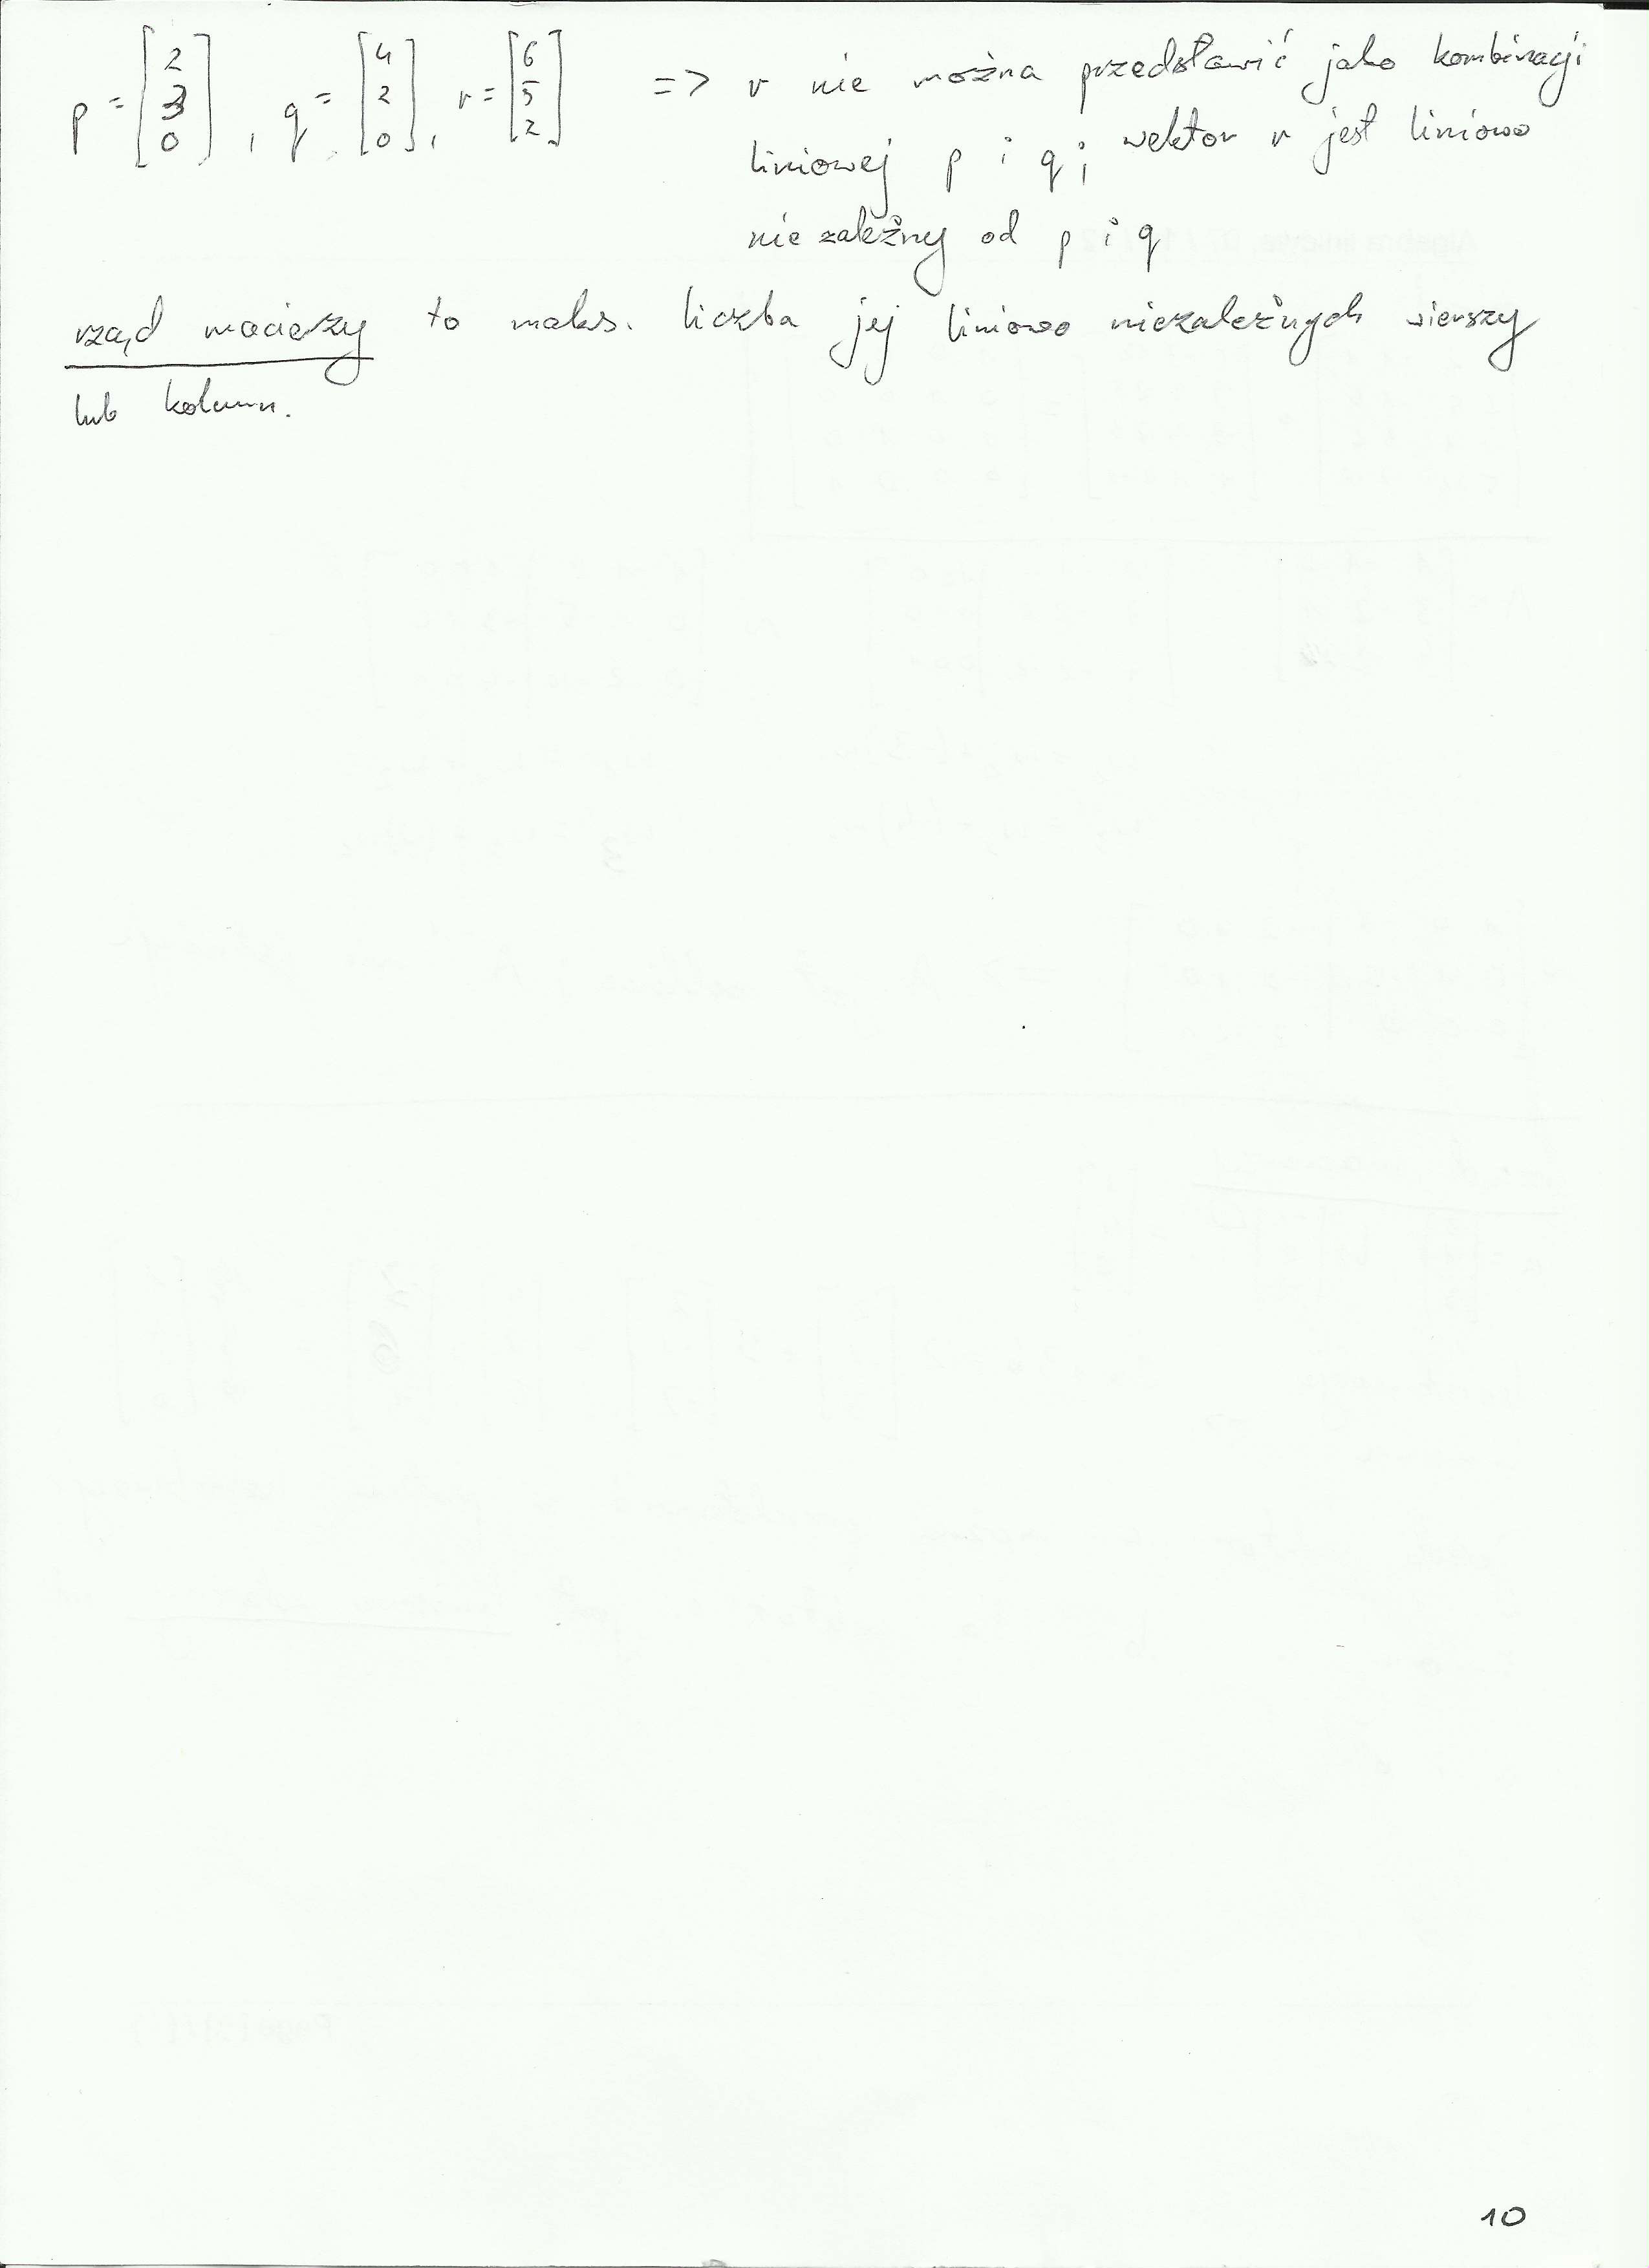 p = [2 3 0], q = [4 2 0], r = [6 5 2] => r nie można przedstawić jako kombinacji
liniowej p i q; wektor r jest liniowo
niezależny od p i q
rząd macierzy to maks. liczba jej liniowo niezależnych wierszy
lub kolumn.
10